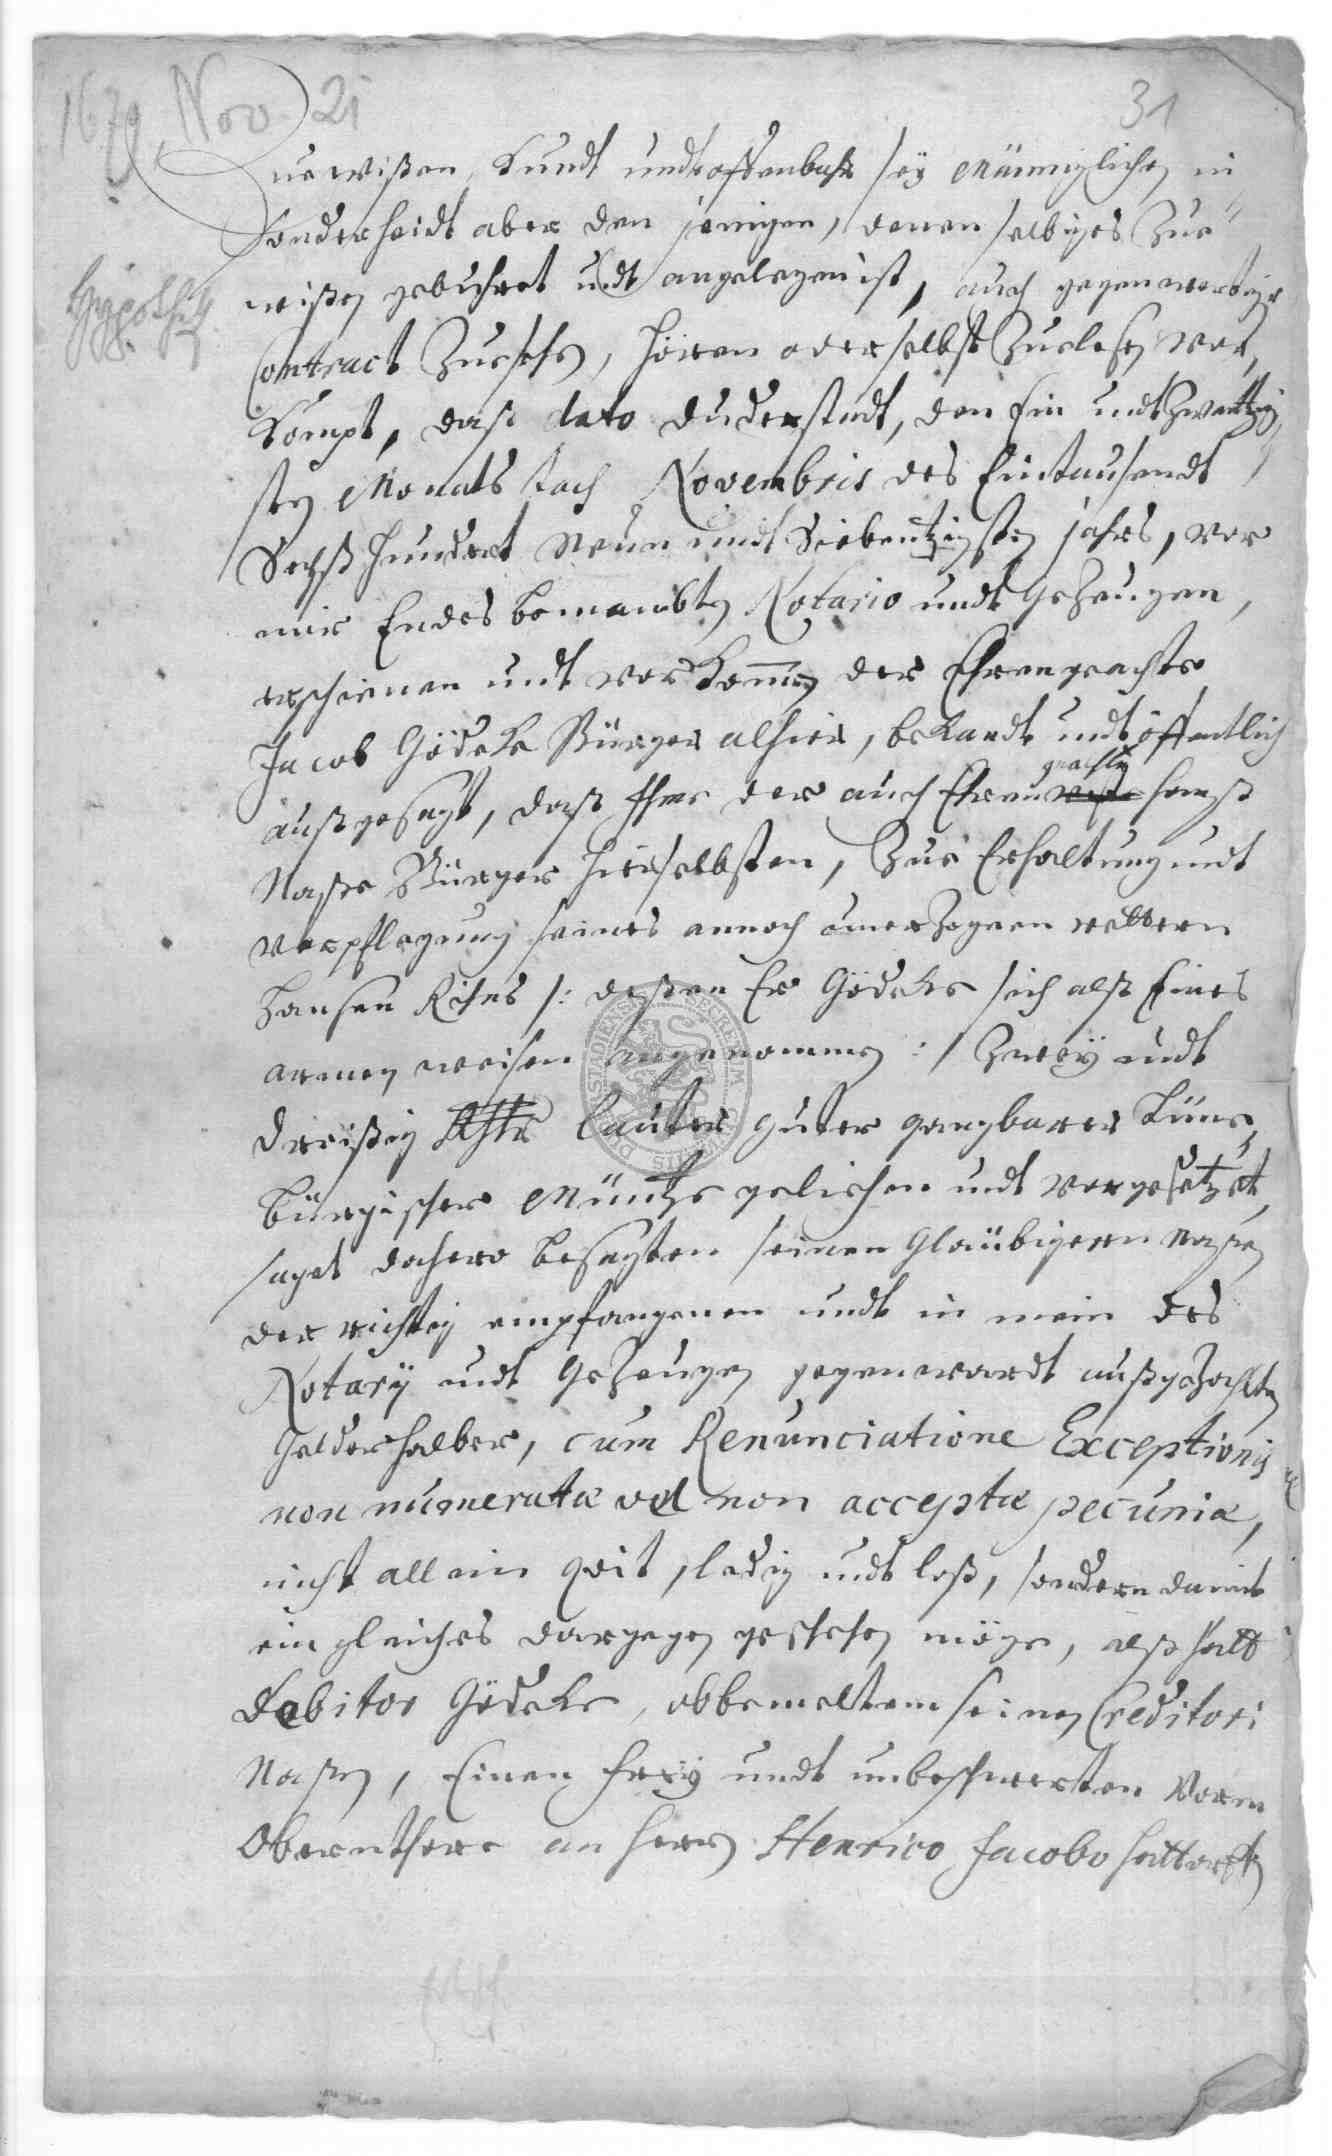 1679 Nov. 21
31
Zue wißen, Kundt undt offenbahr sey Männiglichen in
Sonderheidt aber den jenigen, denen selbiges Zue
wißen gebuhret undt angelegen ist, auch gegenwertige
Hypothek
Contract Zusehen, hören oder selbst Zuelesen vor,
Kompt, daß dato Duderstadt, den Ein undt Zwantzig
sten Monats tach Novembris des Eintausendt
Sechßhundert Neun undt Siebentzigsten jahrs, vor
mir Endes benambten Notario undt Gezeugen,
erschienen undt vorkommen der Ehrengeachte
Jacob Gödeke Bürger alhier, bekandt undt öffentlich
außgesagt, daß Ihme der auch Ehren geachte
Naße Bürger hierselbsten, Zue Erhaltung undt
Verpflegung seines annoch unerzogenen vettern
Hansen /: deßen Er Gödeke sich alß Eines
armen weisen angenommen :/ Zwey undt
dreißig Rthlr lauter guter gangbarer Lüne,
bürgischer Müntze geliehen undt vorgesetzet,
saget dahero besagten seinen Gläubigern Naßen
der richtig empfangenen undt in mein des
Notarÿ undt Gezeugen gegenwardt außgezahlten
Gelder halber, cum Renunciatione Exceptionis
non numeratæ vel non acceptæ pecuniæ,
nicht allein qvit, ledig undt loß, sondern damit
ein gleiches dargegen geschehen möge, alß hatt
Debitor Gödeke, obbemeltem seinen Creditori
Naßen, Einen frey undt unbeschwerten Vorm
Obernthore an Herrn Henrico Jacobo Hattorff